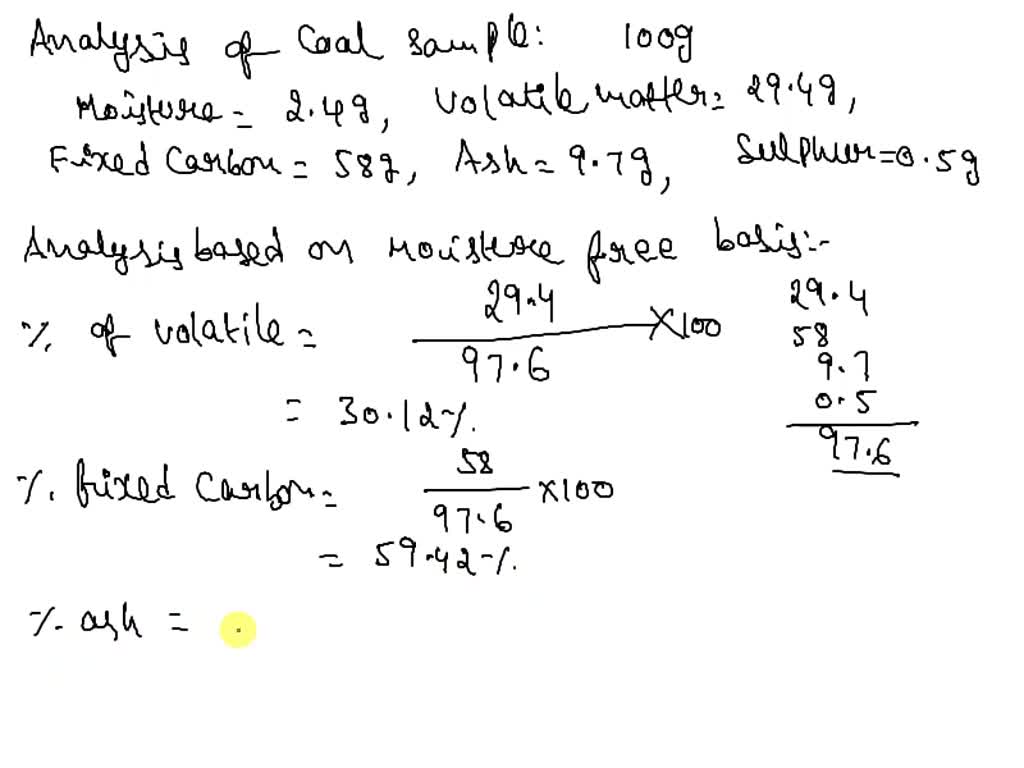 Analysis of Coal Sample: 100g
Moisture = 2.4g, Volatile matter = 29.4g,
Fixed Carbon = 58g, Ash = 9.7g, Sulphur = 0.5g
Analysis based on Moisture free basis:-
% of volatile = 29.4 / 97.6 × 100
= 30.12%
% fixed Carbon = 58 / 97.6 × 100
= 59.42%
% ash =
29.4
58
9.7
0.5
97.6